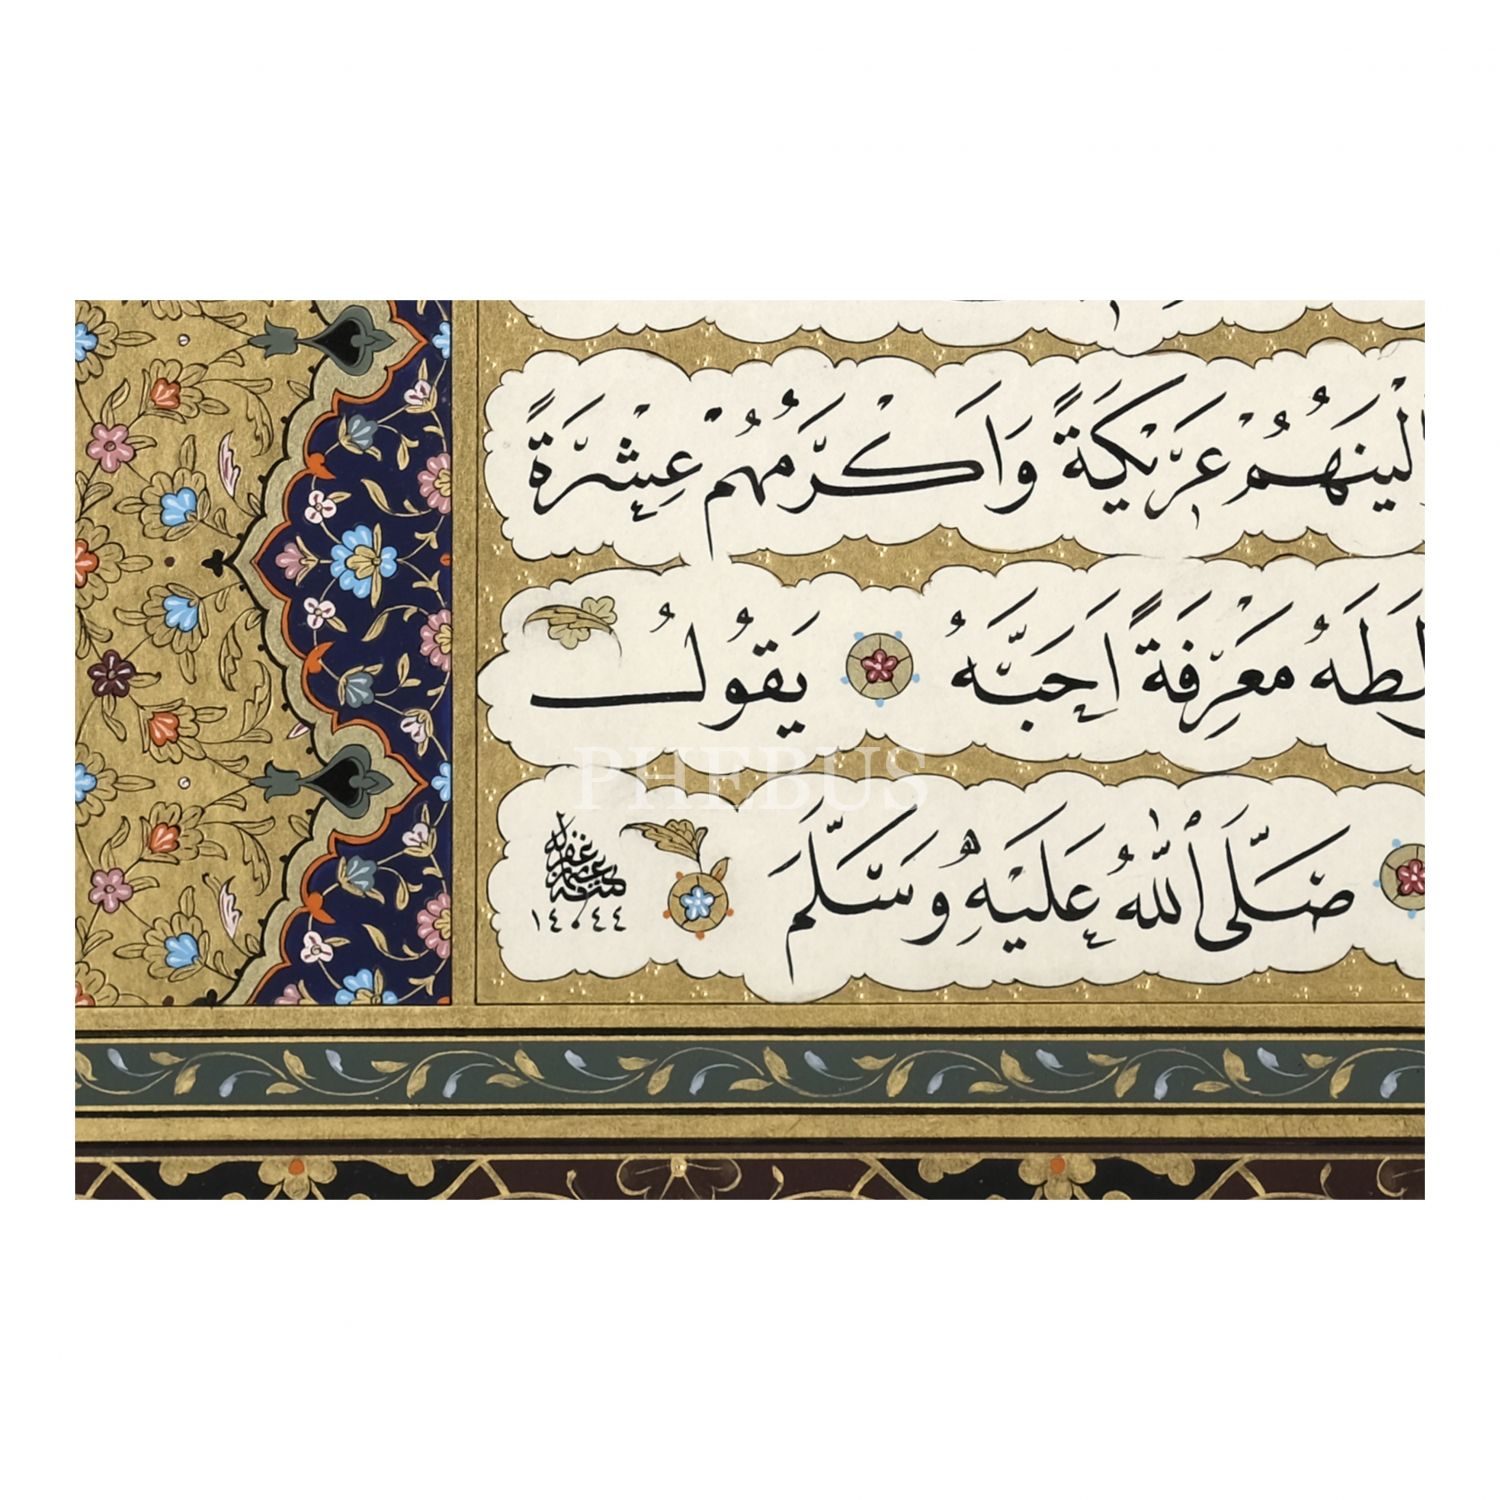 اَلْيَنَهُمْ عَرِيكَةً وَاَكْرَمَهُمْ عِشْرَةً
مَعْرِفَةً اَحَبَّهُ يَقُولُ
صَلَّى اللّٰهُ عَلَيْهِ وَسَلَّمَ
١٤٠٤٤
PHEBUS